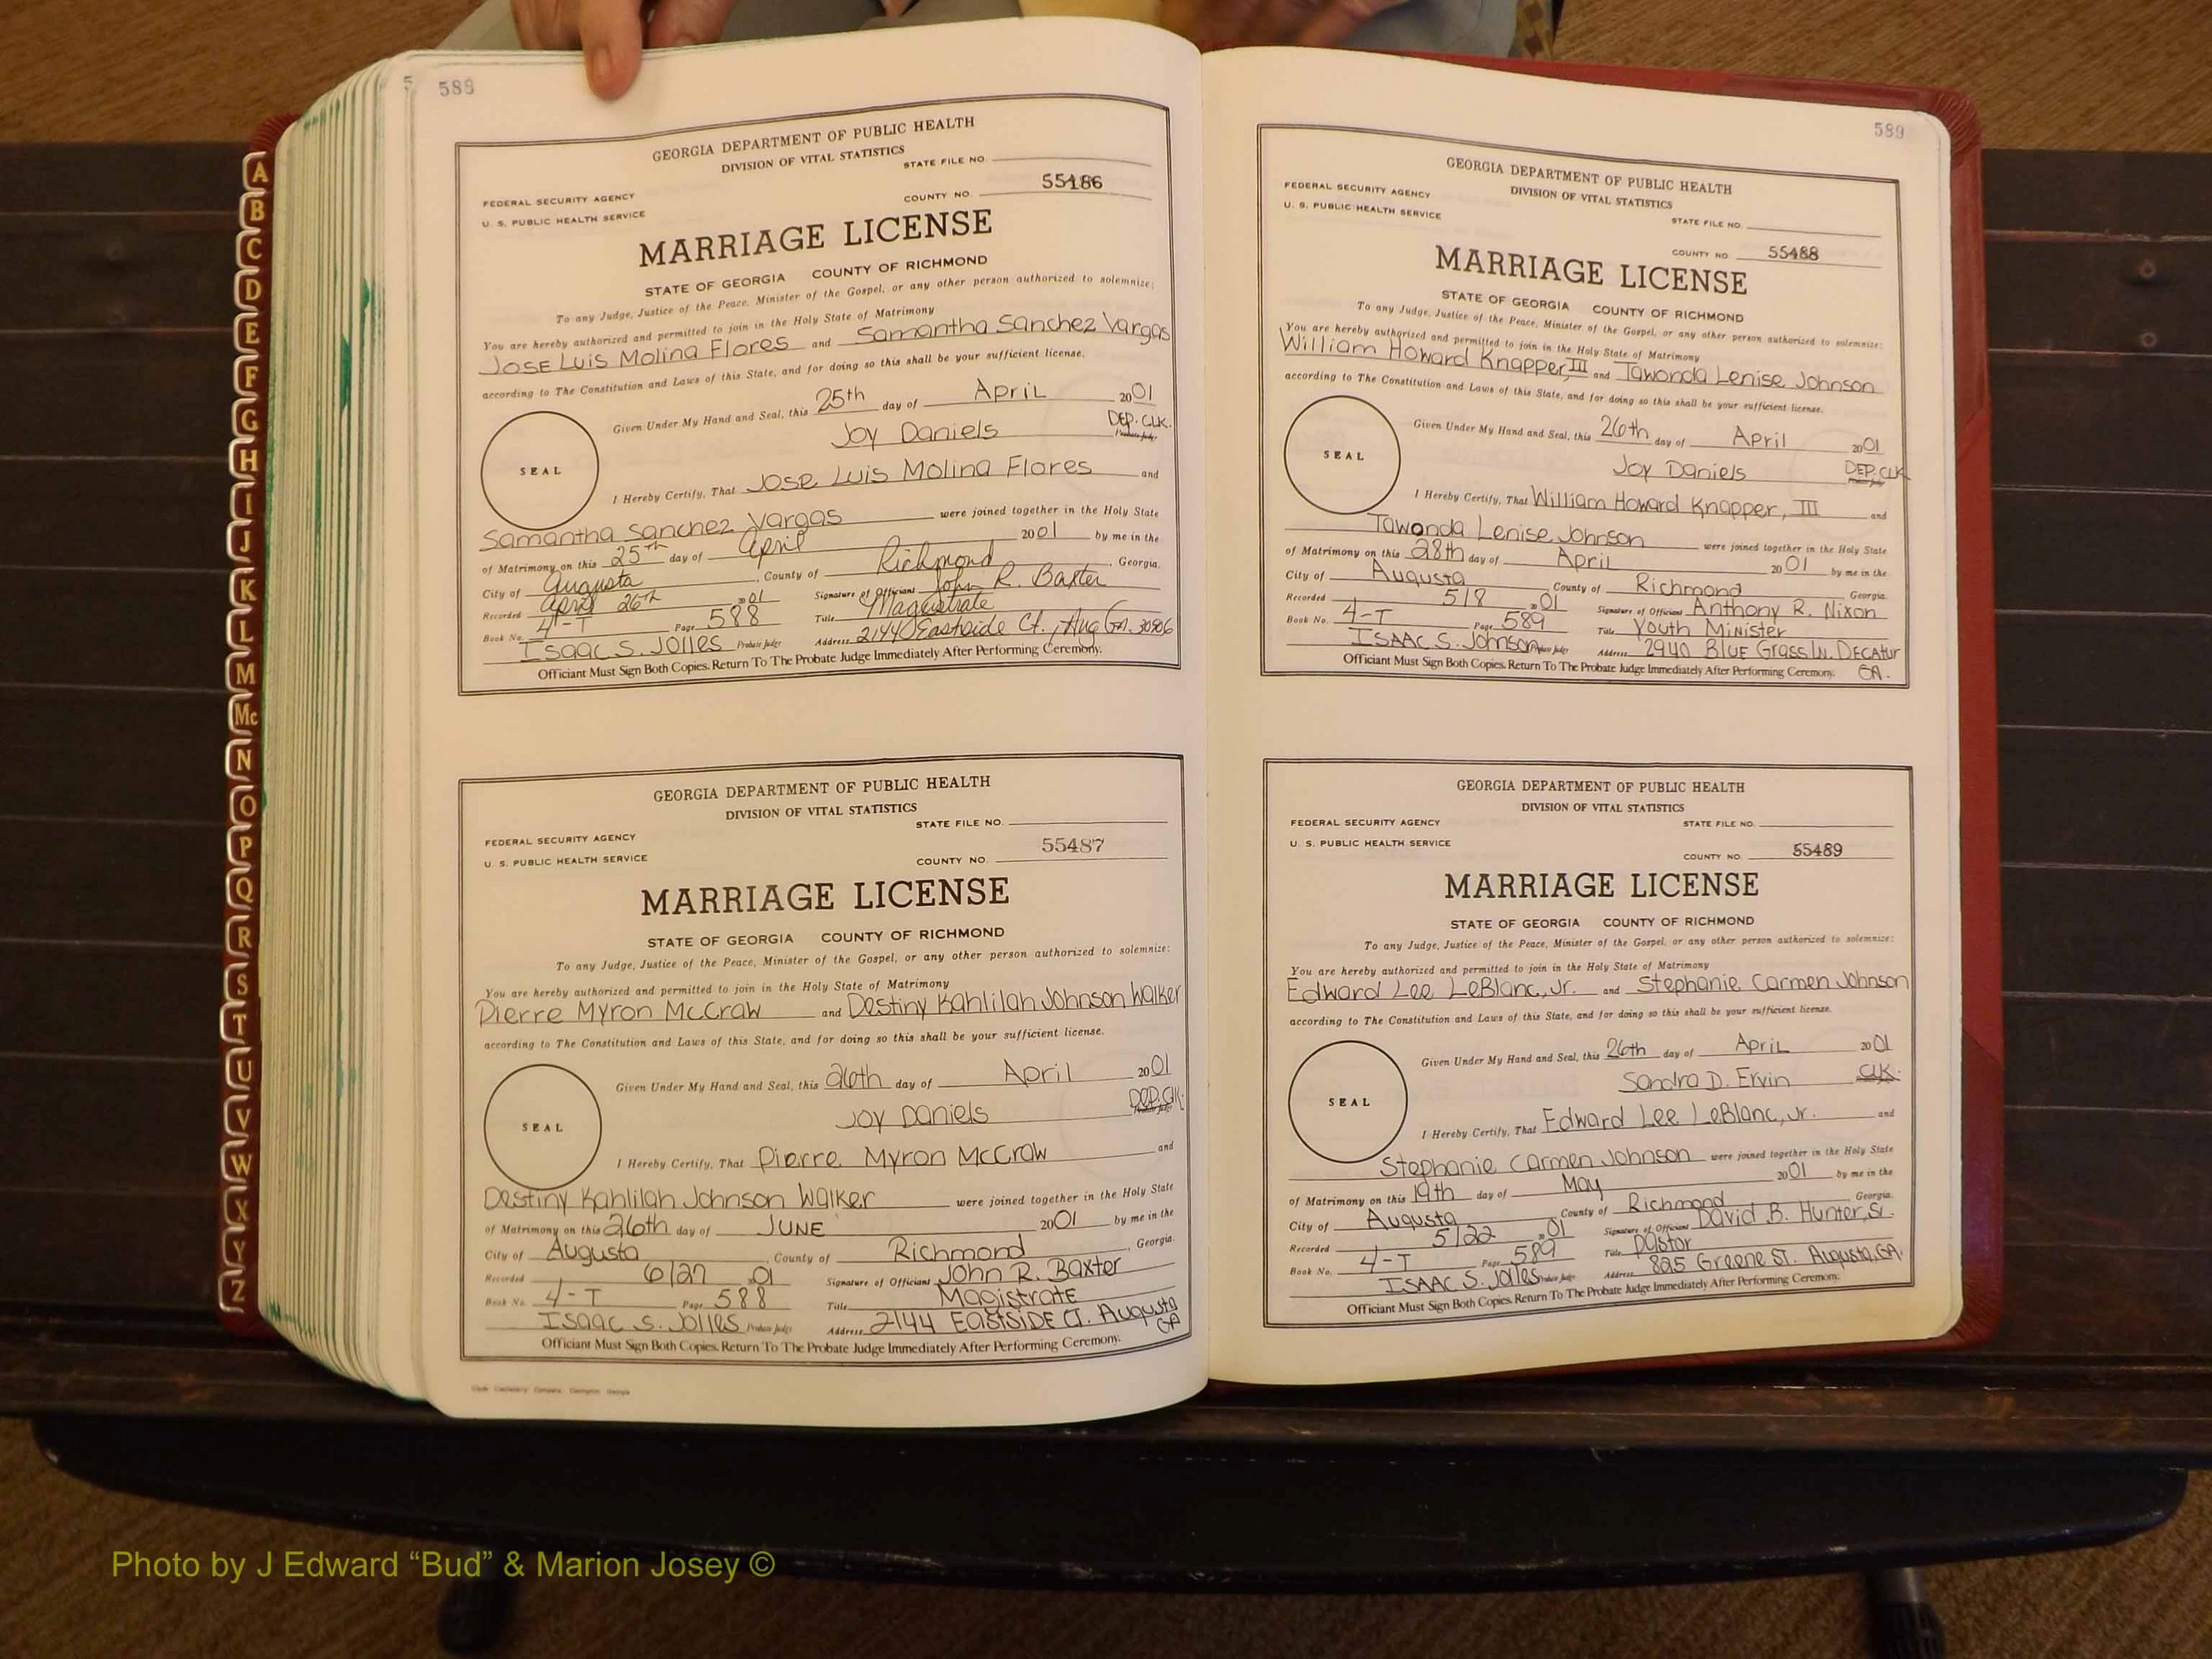 588
GEORGIA DEPARTMENT OF PUBLIC HEALTH
DIVISION OF VITAL STATISTICS
STATE FILE NO.
FEDERAL SECURITY AGENCY
COUNTY NO. 55486
U. S. PUBLIC HEALTH SERVICE
MARRIAGE LICENSE
STATE OF GEORGIA COUNTY OF RICHMOND
To any Judge, Justice of the Peace, Minister of the Gospel, or any other person authorized to solemnize:
You are hereby authorized and permitted to join in the Holy State of Matrimony
Jose Luis Molina Flores and Samantha Sanchez Vargas
according to The Constitution and Laws of this State, and for doing so this shall be your sufficient license.
Given Under My Hand and Seal, this 25th day of April 2001
Joy Daniels DEP. CLK.
Probate Judge
SEAL
I Hereby Certify, That Jose Luis Molina Flores and
Samantha Sanchez Vargas were joined together in the Holy State
of Matrimony on this 25th day of April 2001 by me in the
City of Augusta, County of Richmond, Georgia.
Recorded April 26th 2001 Signature of Officiant John R. Baxter
Book No. 4-T Page 588 Title Magistrate
Isaac S. Jolles Probate Judge Address 2144 Eastside Ct., Aug GA. 30906
Officiant Must Sign Both Copies. Return To The Probate Judge Immediately After Performing Ceremony.
GEORGIA DEPARTMENT OF PUBLIC HEALTH
DIVISION OF VITAL STATISTICS
STATE FILE NO.
FEDERAL SECURITY AGENCY
U. S. PUBLIC HEALTH SERVICE
COUNTY NO. 55487
MARRIAGE LICENSE
STATE OF GEORGIA COUNTY OF RICHMOND
To any Judge, Justice of the Peace, Minister of the Gospel, or any other person authorized to solemnize:
You are hereby authorized and permitted to join in the Holy State of Matrimony
Pierre Myron McCraw and Destiny Kahlilah Johnson Walker
according to The Constitution and Laws of this State, and for doing so this shall be your sufficient license.
Given Under My Hand and Seal, this 26th day of April 2001
Joy Daniels DEP. Clk.
Probate Judge
SEAL
I Hereby Certify, That Pierre Myron McCraw and
Destiny Kahlilah Johnson Walker were joined together in the Holy State
of Matrimony on this 26th day of JUNE 2001 by me in the
City of Augusta, County of Richmond, Georgia.
Recorded 6/27 2001 Signature of Officiant John R. Baxter
Book No. 4-T Page 588 Title Magistrate
Isaac S. Jolles Probate Judge Address 2144 EastSIDE Ct. Augusta
GA
Officiant Must Sign Both Copies. Return To The Probate Judge Immediately After Performing Ceremony.
589
GEORGIA DEPARTMENT OF PUBLIC HEALTH
DIVISION OF VITAL STATISTICS
FEDERAL SECURITY AGENCY
U. S. PUBLIC HEALTH SERVICE
STATE FILE NO.
COUNTY NO. 55488
MARRIAGE LICENSE
STATE OF GEORGIA COUNTY OF RICHMOND
To any Judge, Justice of the Peace, Minister of the Gospel, or any other person authorized to solemnize:
You are hereby authorized and permitted to join in the Holy State of Matrimony
William Howard Knapper, III and Tawonda Lenise Johnson
according to The Constitution and Laws of this State, and for doing so this shall be your sufficient license.
Given Under My Hand and Seal, this 26th day of April 2001
Joy Daniels DEP. CLK
Probate Judge
SEAL
I Hereby Certify, That William Howard Knapper, III and
Tawonda Lenise Johnson were joined together in the Holy State
of Matrimony on this 28th day of April 2001 by me in the
City of Augusta, County of Richmond Georgia.
Recorded 5/8 2001 Signature of Officiant Anthony R. Nixon
Book No. 4-T Page 589 Title Youth Minister
ISAAC S. Johnson Probate Judge Address 2940 BLUE Grass LN. DECATUR
GA.
Officiant Must Sign Both Copies. Return To The Probate Judge Immediately After Performing Ceremony.
GEORGIA DEPARTMENT OF PUBLIC HEALTH
DIVISION OF VITAL STATISTICS
FEDERAL SECURITY AGENCY
STATE FILE NO.
U. S. PUBLIC HEALTH SERVICE
COUNTY NO. 55489
MARRIAGE LICENSE
STATE OF GEORGIA COUNTY OF RICHMOND
To any Judge, Justice of the Peace, Minister of the Gospel, or any other person authorized to solemnize:
You are hereby authorized and permitted to join in the Holy State of Matrimony
Edward Lee LeBlanc, Jr. and Stephanie Carmen Johnson
according to The Constitution and Laws of this State, and for doing so this shall be your sufficient license.
Given Under My Hand and Seal, this 26th day of April 2001
Sandra D. Ervin CLK.
SEAL
I Hereby Certify, That Edward Lee LeBlanc, Jr. and
Stephanie Carmen Johnson were joined together in the Holy State
of Matrimony on this 19th day of May 2001 by me in the
City of Augusta County of Richmond, Georgia.
Recorded 5/22 2001 Signature of Officiant David B. Hunter, Sr.
Book No. 4-T Page 589 Title Pastor
ISAAC S. Jolles Probate Judge Address 825 Greene ST. Augusta, GA.
Officiant Must Sign Both Copies. Return To The Probate Judge Immediately After Performing Ceremony.
A
B
C
D
E
F
G
H
I
J
K
L
M
Mc
N
O
P
Q
R
S
T
U
V
W
X
Y
Z
Photo by J Edward “Bud” & Marion Josey ©